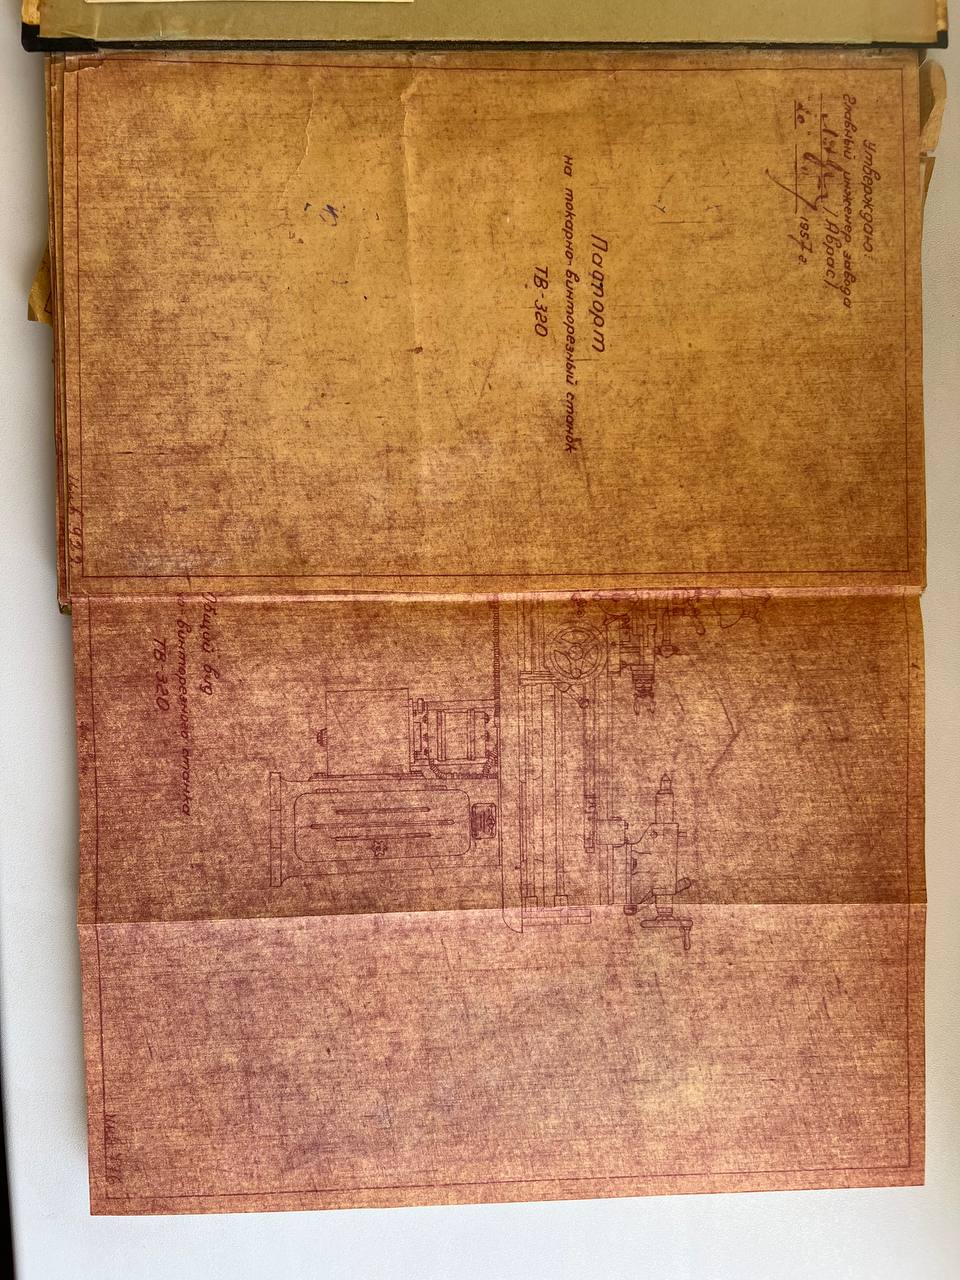 Утверждаю:
Главный инженер завода
/Абрас/
1957 г.
Паспорт
на токарно-винторезный станок
ТВ-320
Инв 9
Общий вид
винторезного станка
ТВ-320